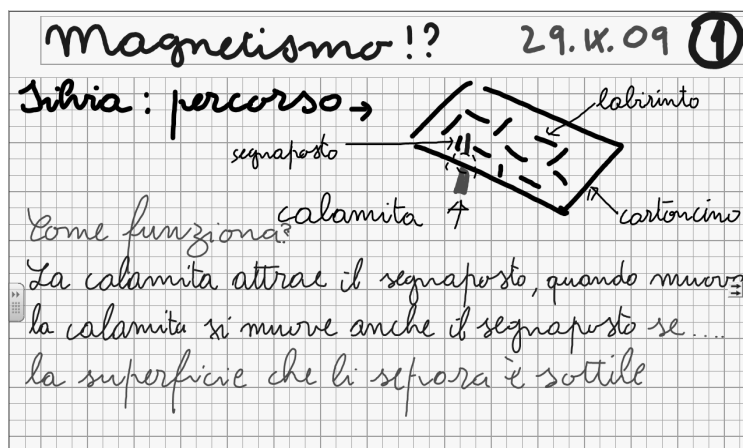 Magnetismo!? 29.IX.09 1
Silvia: percorso →
labirinto
segnaposto
calamita
cartoncino
Come funziona?
La calamita attrae il segnaposto, quando muovo
la calamita si muove anche il segnaposto se....
la superficie che li separa è sottile